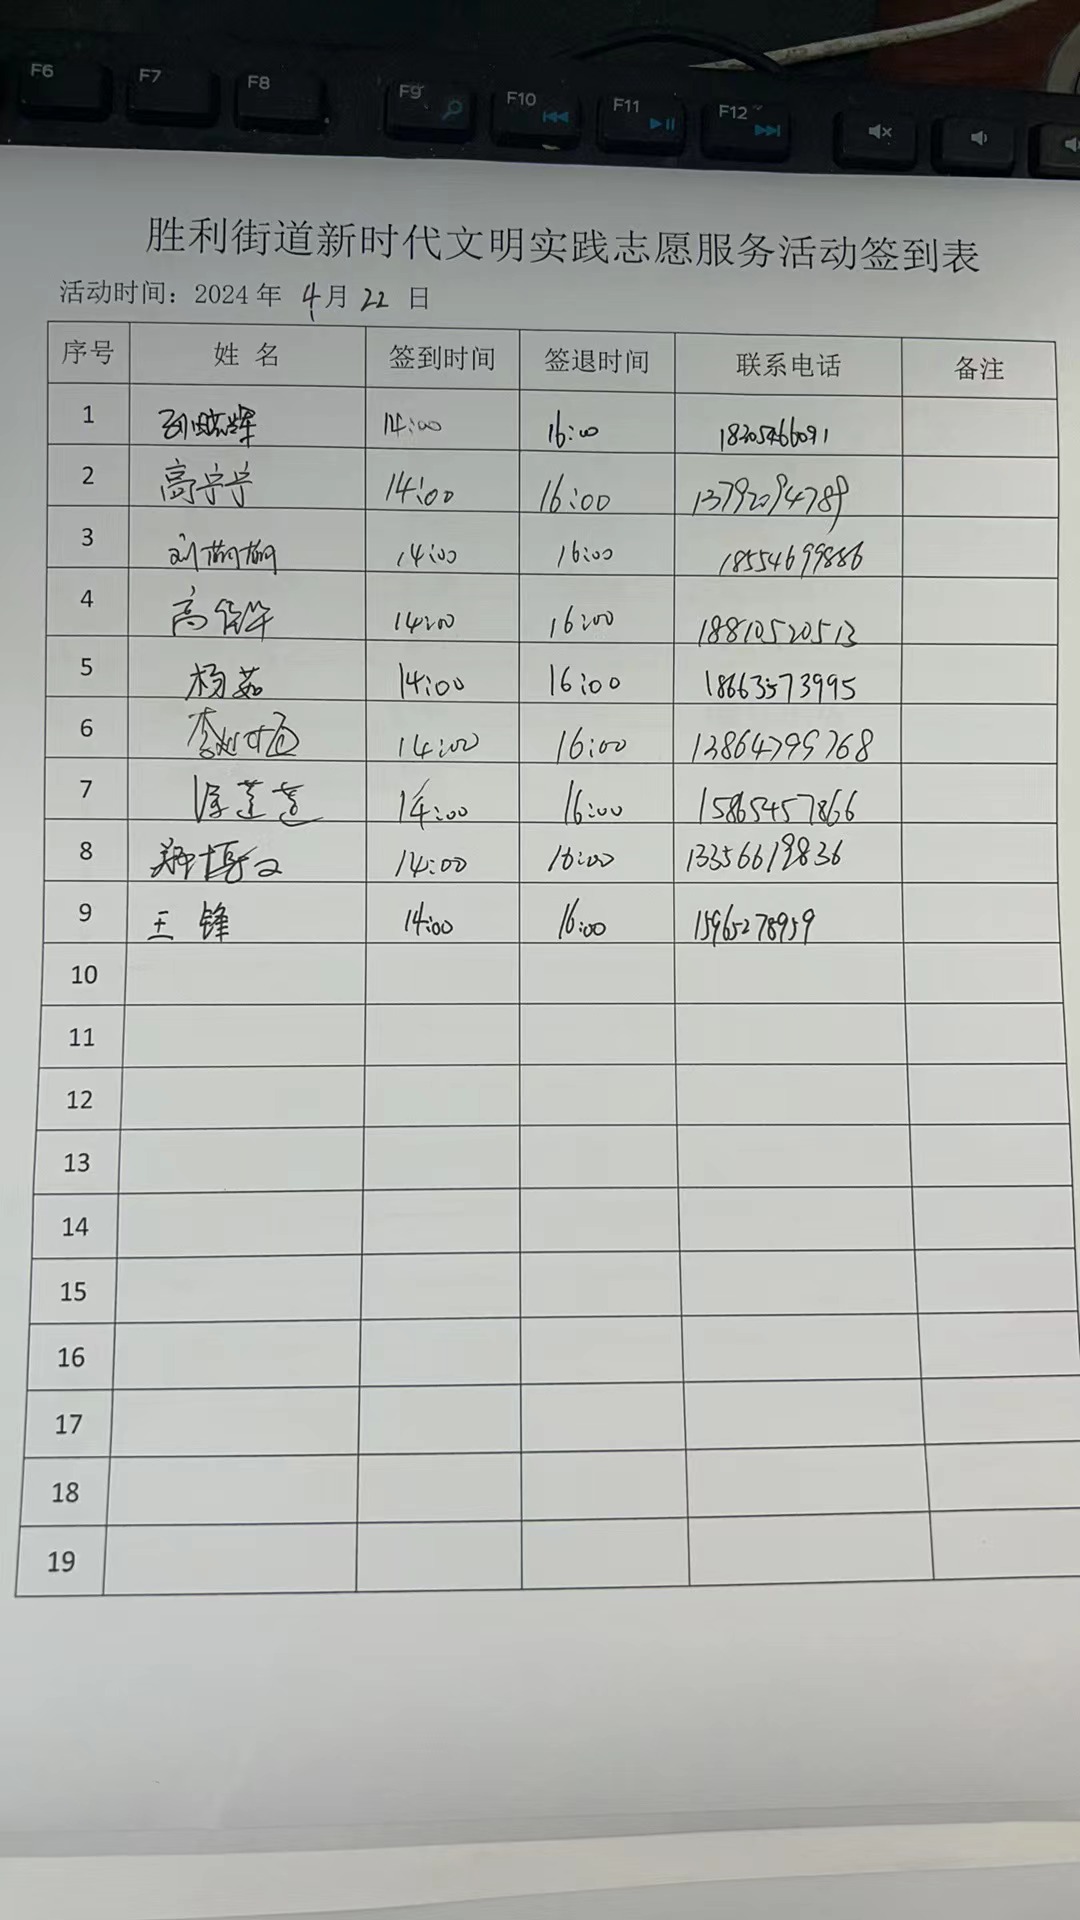 F6 F7 F8 F9 F10 F11 F12
胜利街道新时代文明实践志愿服务活动签到表
活动时间：2024 年 4月 22 日
序号 姓 名 签到时间 签退时间 联系电话 备注
1 14:00 16:00 18205466091
2 高宁宁 14:00 16:00 13792094789
3 14:00 16:00 18554699886
4 高 14:00 16:00 18810520513
5 杨茹 14:00 16:00 18663573995
6 李 14:00 16:00 13864799768
7 14:00 16:00 15865457866
8 郑博文 14:00 16:00 13356619836
9 王 锋 14:00 16:00 15965278959
10
11
12
13
14
15
16
17
18
19